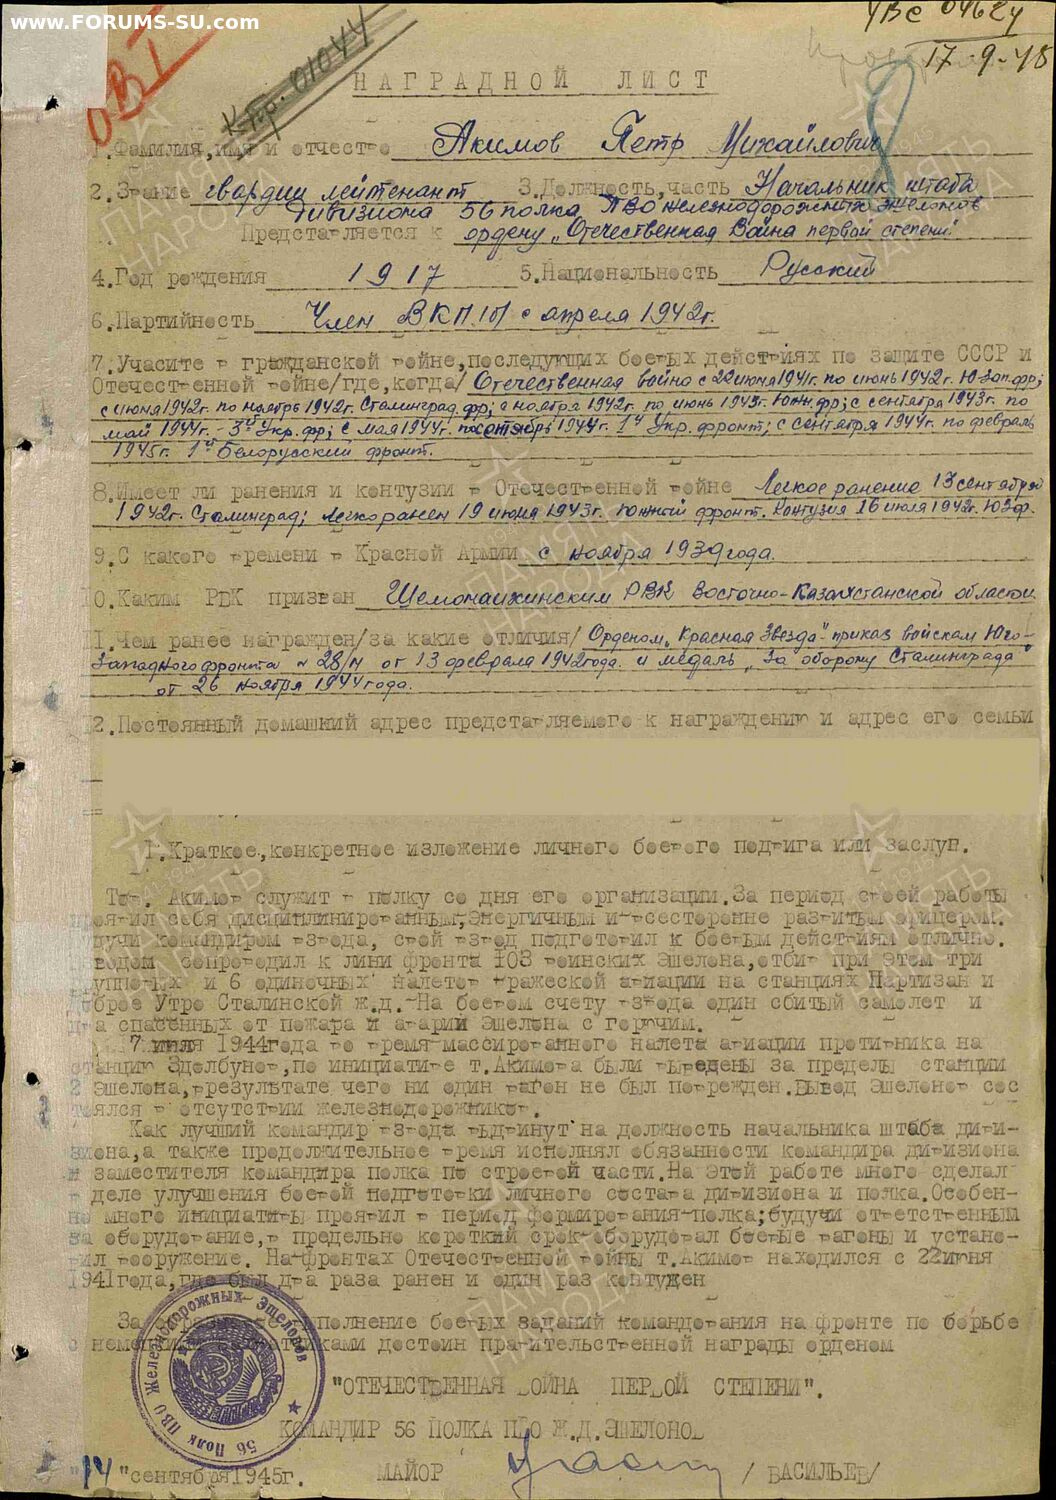 www.FORUMS-SU.com
УВС 04624
17-9-48
ОВ I
К.пр. 01044
НАГРАДНОЙ ЛИСТ
1.Фамилия,имя и отчество Акимов Петр Михайлович
2.Звание гвардии лейтенант 3.Должность,часть Начальник штаба
дивизиона 56 полка ПВО железнодорожных эшелонов
Представляется к ордену „Отечественная Война первой степени"
4.Год рождения 1917 5.Национальность Русский
6.Партийность Член ВКП/б/ с апреля 1942г.
7.Учасите в гражданской войне,последующих боевых действиях по защите СССР и
Отечественной войне/где,когда/ Отечественная война с 22 июня 1941г. по июнь 1942г. Ю-Зап.фр;
с июня 1942г. по ноябрь 1942г. Сталинград.фр; с ноября 1942г. по июнь 1943г. Южн.фр; с сентября 1943г. по
май 1944г. - 3й Укр.фр; с мая 1944г. по сентябрь 1944г. 1й Укр. фронт; с сентября 1944г. по февраль
1945г. 1й Белорусский фронт.
8.Имеет ли ранения и контузии в Отечественной войне Легкое ранение 13 сентября
1942г. Сталинград; легко ранен 19 июня 1943г. Южный фронт. Контузия 16 июля 1942г. ЮЗфр.
9.С какого времени в Красной Армии с ноября 1939 года.
10.Каким РВК призван Шемонаихинским РВК Восточно-Казахстанской области
11.Чем ранее награжден/за какие отличия/ Орденом „Красная Звезда"-приказ войскам Юго-
Западного фронта № 28/н от 13 февраля 1942 года. и медаль „За оборону Сталинграда"
от 26 ноября 1944 года.
12.Постоянный домашний адрес представляемого к награждению и адрес его семьи
1.Краткое,конкретное изложение личного боевого подвига или заслуг.
Тов. Акимов служит в полку со дня его организации.За период своей работы
проявил себя дисциплинированным,энергичным и всесторонне развитым офицером.
Будучи командиром взвода, свой взвод подготовил к боевым действиям отлично.
Взводом сопроводил к лини фронта 103 воинских Эшелона,отбив при этом три
групповых и 6 одиночных налетов вражеской авиации на станциях Партизан и
Доброе Утро Сталинской ж.д.-На боевом счету взвода один сбитый самолет и
два спасенных от пожара и аварии Эшелона с горючим.
7 июля 1944года во время массированного налета авиации противника на
станцию Здолбуново,по инициативе т.Акимова были выведены за пределы станции
2 Эшелона,врезультате чего ни один вагон не был поврежден.Вывод Эшелонов сос
тоялся в отсутствии железнодорожников.
Как лучший командир взвода выдвинут на должность начальника штаба диви-
зиона,а также продолжительное время исполнял обязанности командира дивизиона
и заместителя командира полка по строевой части.На этой работе много сделал
в деле улучшения боевой подготовки личного состава дивизиона и полка.Особен-
но много инициативы проявил в период формирования полка;будучи ответственным
за оборудование,в предельно короткий срок оборудовал боевые вагоны и устано-
вил вооружение. На фронтах Отечественной войны т.Акимов находился с 22 июня
1941года,где был два раза ранен и один раз контужен
За образцовое выполнение боевых заданий командования на фронте по борьбе
с немецкими захватчиками достоин правительственной награды орденом
"ОТЕЧЕСТВЕННАЯ ВОЙНА ПЕРВОЙ СТЕПЕНИ".
КОМАНДИР 56 ПОЛКА ПВО Ж.Д.ЭШЕЛОНОВ
МАЙОР /ВАСИЛЬЕВ/
"14"сентября1945г.
56 Полк ПВО Железнодорожных Эшелонов
ПАМЯТЬ НАРОДА